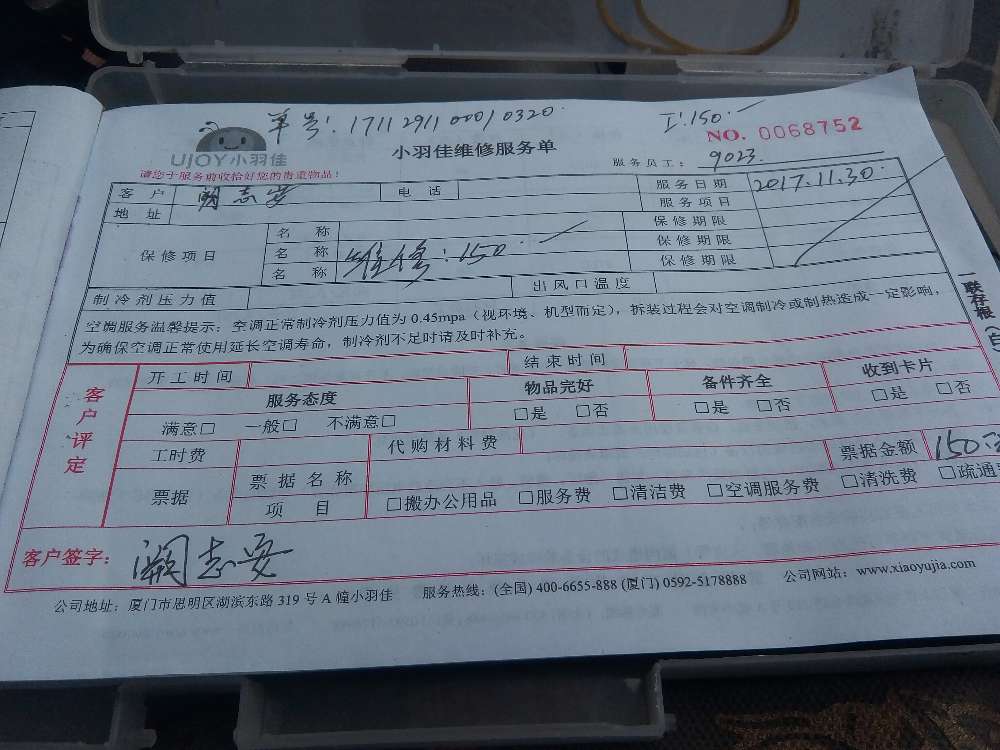 单号: 1711291100010320
工:150.
NO. 0068752
UJOY小羽佳
小羽佳维修服务单
服务员工: 9023
请您于服务前收拾好您的贵重物品!
客户 阙志安 电话 服务日期 2017.11.30
地址 服务项目
保修项目 名称 保修期限
名称 维修:150. 保修期限
名称 保修期限
制冷剂压力值 出风口温度
空调服务温馨提示: 空调正常制冷剂压力值为 0.45mpa (视环境、机型而定), 拆装过程会对空调制冷或制热造成一定影响,
为确保空调正常使用延长空调寿命, 制冷剂不足时请及时补充。
一联存根
客户评定
开工时间 结束时间
服务态度 物品完好 备件齐全 收到卡片
满意□ 一般□ 不满意□ □是 □否 □是 □否 □是 □否
工时费 代购材料费 票据金额 150
票据 票据名称
项目 □搬办公用品 □服务费 □清洁费 □空调服务费 □清洗费 □疏通
客户签字: 阙志安
公司地址: 厦门市思明区湖滨东路 319 号 A 幢小羽佳 服务热线: (全国) 400-6655-888 (厦门) 0592-5178888 公司网站: www.xiaoyujia.com